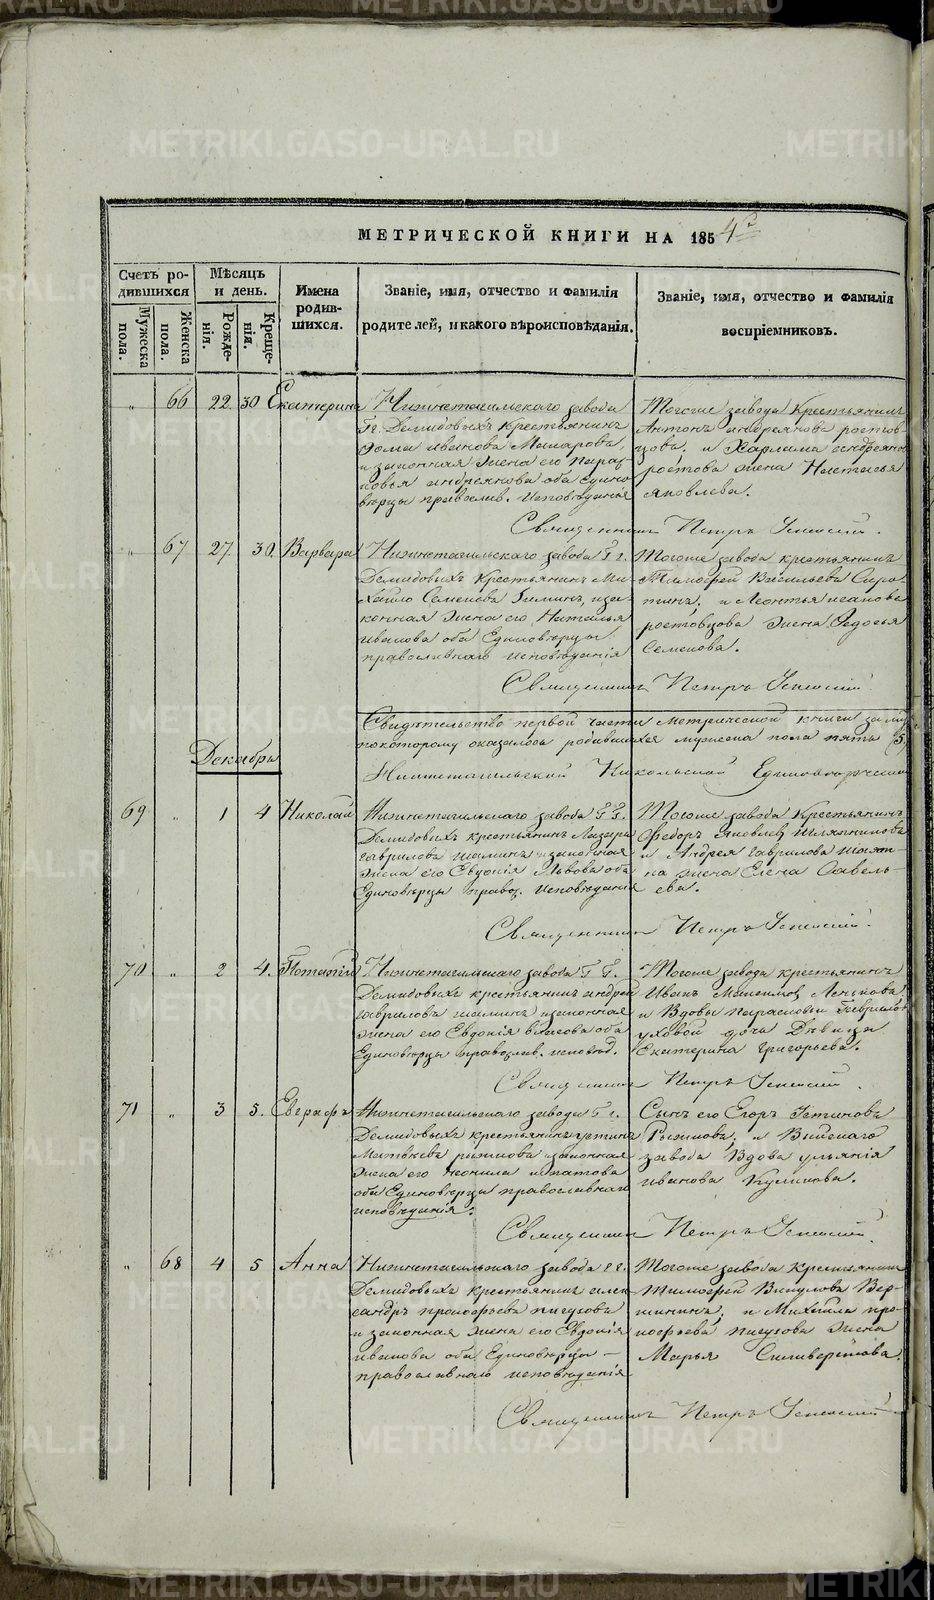 МЕТРИЧЕСКОЙ КНИГИ НА 1854й
Счетъ ро-
дившихся
Мужеска пола.
Женска пола.
Мѣсяцъ
и день.
Рожде-
нія.
Креще-
нія.
Имена
родив-
шихся.
Званіе, имя, отчество и фамилія
родителей, и какого вѣроисповѣданія.
Званіе, имя, отчество и фамилія
воспріемниковъ.
" 66 22. 30 Екатерина
Нижнетагильскаго завода
Гг. Демидовыхъ крестьянинъ
Фома Иванова
и законная жена его Парас-
ковья Андреянова оба едино-
вѣрцы православ. исповѣданія
Тогоже завода Крестьянинъ
Антонъ Андреянова ростов
цовъ. и Харлама андреяно
ростова жена Настасья
Яковлева.
Священникъ Петръ
" 67 27. 30. Варвара
Нижнетагильскаго завода Г г.
Демидовыхъ Крестьянинъ Ми-
хайло Семенова и зак
конная жена его Наталья
Иванова оба Единовѣрцы
православнаго исповѣданія
Тогоже завода крестьянинъ
Тимофей Васильева Сиро-
тинъ. и Леонтья иванова
ростовцова жена Федосья
Семенова.
Священникъ Петръ
Свидѣтельство первой части метрической книги за
покоторому оказалось родившихся мужеска пола пять (5
Нижнетагильской Никольской Единовѣрческой
Декабрь
69 " 1 4 Николай
Нижнетагильскаго завода Г. Г.
Демидовыхъ крестьянинъ Лазарь
гаврилова и законная
жена его Евдокія Львова оба
Единовѣрцы правос. Исповѣданія
Тогоже завода Крестьянинъ
Федоръ Яковлев
и Андрея гаврилова
на жена Елена Савель-
ева.
Священникъ Петръ
70 " 2 4. Потапій
Нижнетагильскаго завода Г Г.
Демидовыхъ крестьянинъ андрей
гавриловъ и законная
жена его Евдокія оба
Единовѣрцы православ. исповѣд.
Тогоже завода крестьянинъ
Иванъ
и Вдовы Парасковьи Гавриловой
дочь Дѣвица
Екатерина Григорьева.
Священникъ Петръ
71 " 3 5. Евграфъ
Нижнетагильскаго завода Г г.
Демидовыхъ крестьянинъ устинъ
Матвѣева рыжкова и законная
жена его неонила ипатова
оба Единовѣрцы православнаго
исповѣданія.
Сынъ его Егоръ Устинова
Рыжкова. и Выйскаго
завода Вдова ульянія
иванова Куликова.
Священникъ Петръ
" 68 4 5 Анна
Нижнетагильскаго завода г г.
Демидовыхъ крестьянинъ алек
сандръ прокофьева пигузовъ
и законная жена его Евдокія
иванова оба Единовѣрцы -
православнаго исповѣданія
Тогоже завода крестьянинъ
Тимофей Викулова Вер-
шининъ. и Михайла про-
кофьева пигузова жена
Марья Силиверстова.
Священникъ Петръ
METRIKI.GASO-URAL.RU